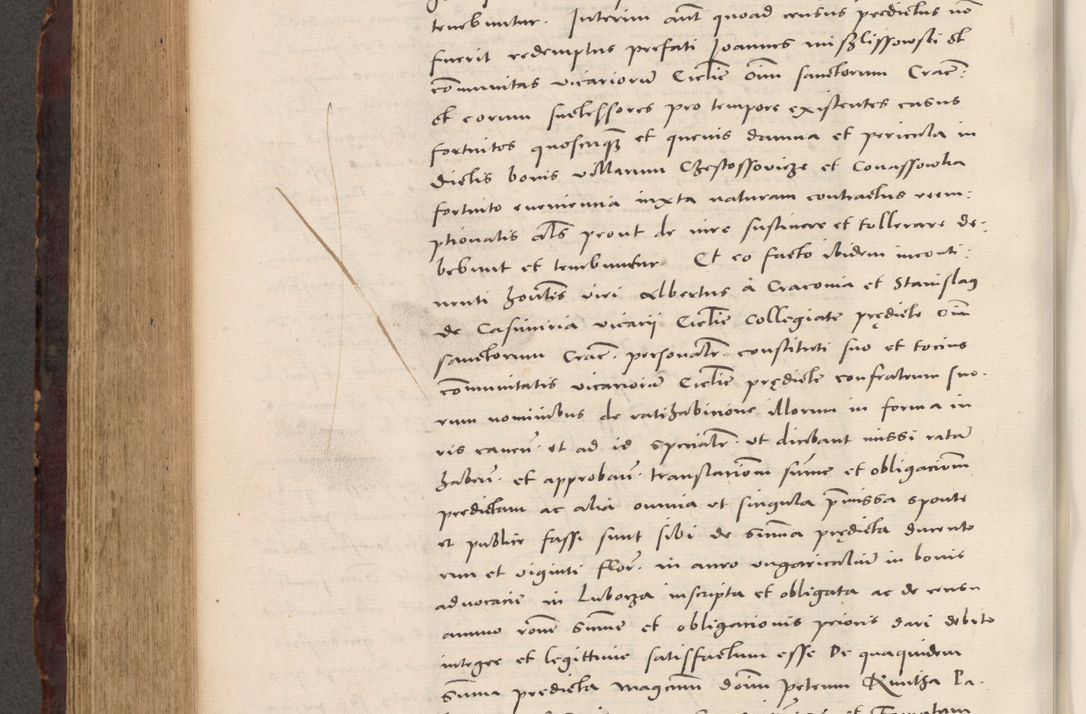 tenebuntur. Interim aũt quoad census predictus nõ
fuerit redemptus prefati Joannes Misszlissowski et
cõmunitas vicariorũ Ecclie oĩm sanctorum Crac̃:
et eorum successores pro tempore existentes casus
fortuitos quoscunq̃ et quevis damna et pericula in
dictis bonis villarum Czestossovicze et Conassowka
fortuito evenienda iuxta naturam contractus reem:
ptionalis al̃s prout de iure sustinere et tollerare de:
bebunt et tenebuntur Et eo facto ibidem inconti:
nenti hon̄les viri Albertus à Cracovia et Stanislaus
de Casimiria vicarii Ecclie Collegiate prędicte oĩm
sanctorum Crac̃. personalr̃ constituti suo et tocius
cõmunitatis vicariorũ Ecclie prędicte confratrum suo-
rum nominibus de ratihabitione illorum in forma iu
ris caven̄. et ad id specialr̃. ut dicebant missi ratã
haben̄. et approban̄. translationẽ sũme et obligacionẽ
predictam ac alia omnia et singula p̃missa sponte
et publice fassi sunt sibi de sũma prędicta ducento
rum et viginti flor̃. in auro ungaricaliũ in bonis
advocatie in Luborza inscripta et obligata ac de censu
annuo rõne sũme et obligationis prioris dari debito
integre et legittime satisfactum esse De qua quidem
sũma predicta magcũm dõim Petrum Kmitha Pa-